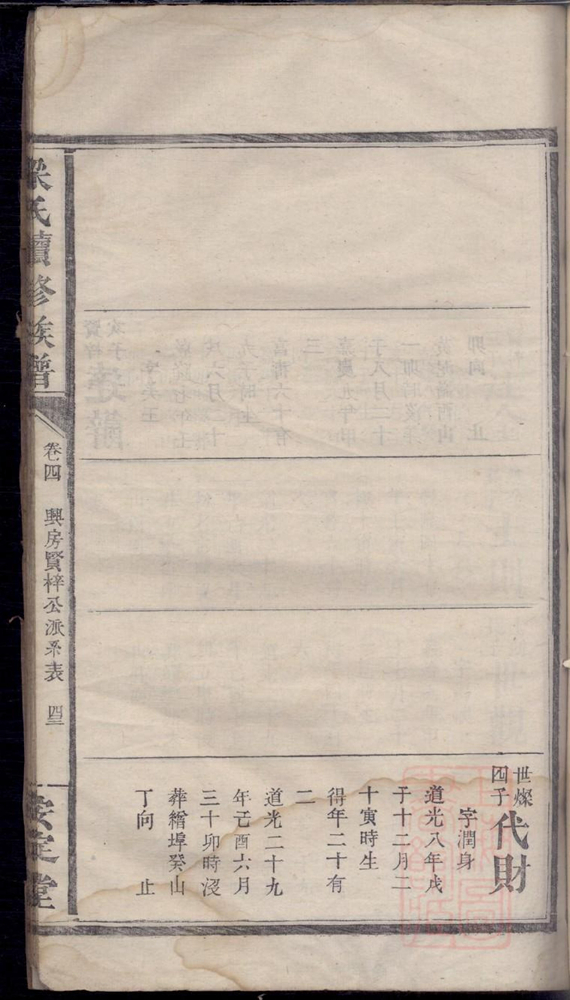 世燦
四子
代財
字潤身
道光八年戊
子十二月二
十寅時生
得年二十有
二
道光二十九
年己酉六月
三十卯時沒
葬繒埠癸山
丁向 止
氏續修族譜
卷四 興房賢梓公派系表 四三
安定堂